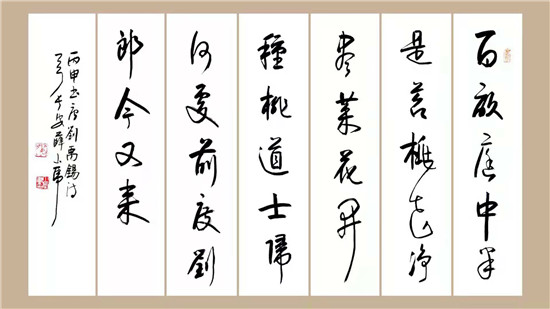 百畝庭中半
是苔桃花净
盡菜花開
種桃道士歸
何處前度劉
郎今又来
丙申书唐劉禹錫詩
於長安薛